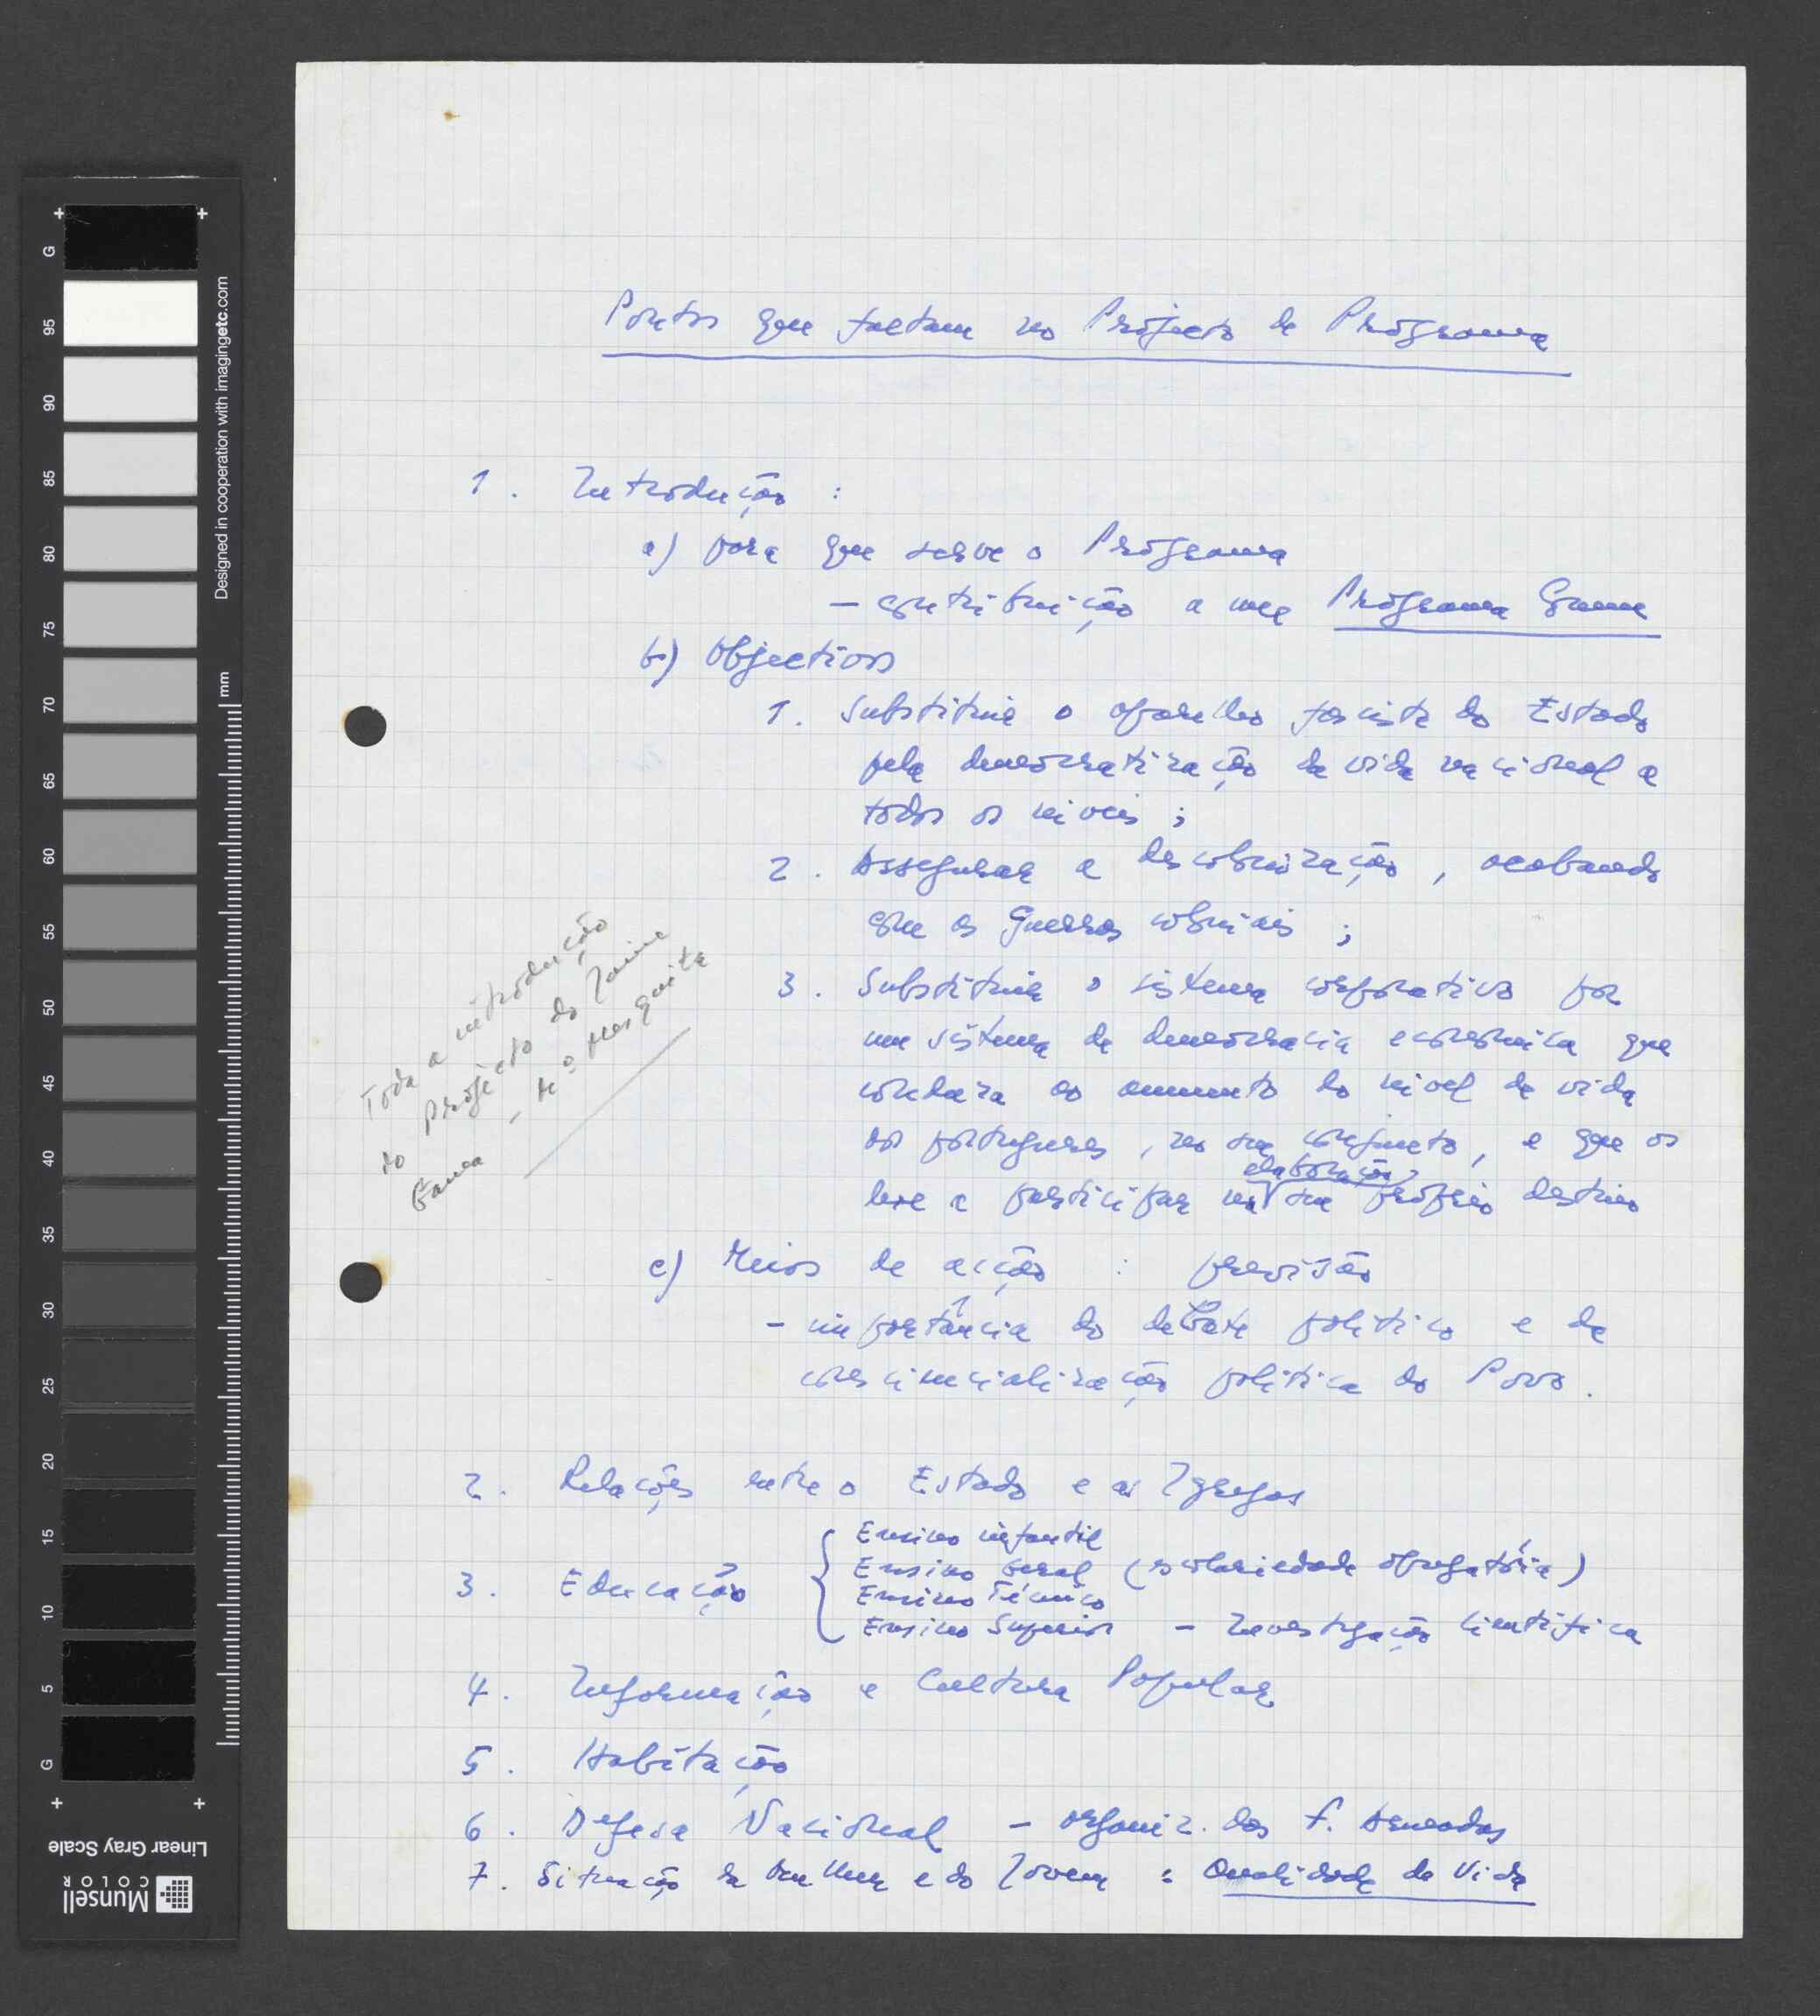 Pontos que faltam no Projecto de Programa
1. Introdução :
a) para que serve o Programa
- contribuição a um Programa Comum
b) Objectivos
1. Substituir o aparelho fascista do Estado
pela democratização da vida nacional a
todos os níveis ;
2. Assegurar a descolonização, acabando
com as Guerras coloniais ;
3. Substituir o sistema corporativo por
um sistema de democracia económica que
conduza ao aumento do nível de vida
dos portugueses, no seu conjunto, e que os
leve a participar na elaboração seu próprio destino
Toda a introdução
do projecto do Jaime
Gama
- M. Mesquita
c) Meios de acção : previsão
- importância do debate político e da
consciencialização política do Povo.
2. Relações entre o Estado e as Igrejas
3. Educação
Ensino infantil
Ensino Geral (escolariedade obrigatória)
Ensino Técnico
Ensino Superior - Investigação Científica
4. Informação e Cultura Popular
5. Habitação
6. Defesa Nacional - organiz. das F. Armadas
7. Situação da Mulher e do Jovem : Qualidade da Vida
G
95
90
85
80
75
70
65
60
55
50
45
40
35
30
25
20
15
10
5
G
mm
Designed in cooperation with imagingetc.com
Linear Gray Scale
Munsell
COLOR